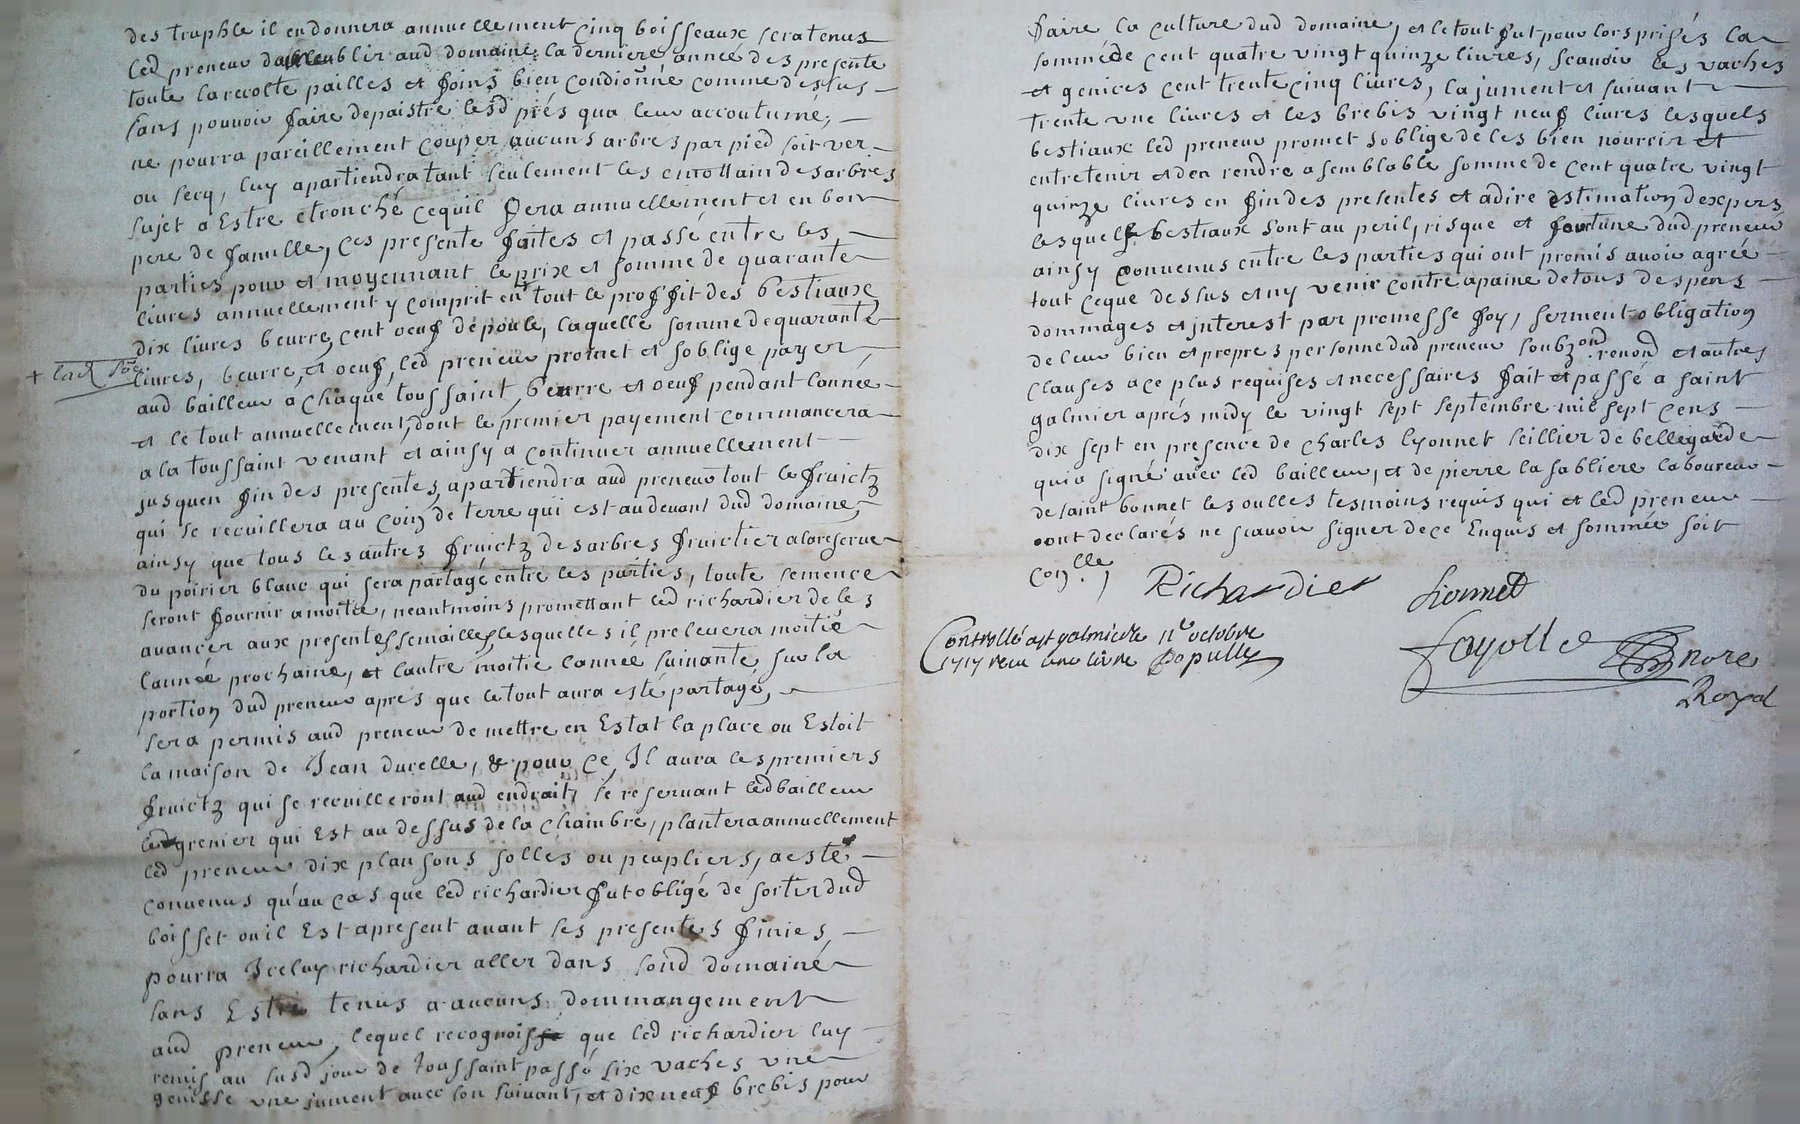 des truphle il en donnera annuellement Cinq boisseaux sera tenus
led preneur dableublir aud domaine la derniere année des presente
toute la recolte pailles et foins bien condionné comme dessus
sans pouvoir faire depaistre lesd prés qua leur accoutumé,
ne pourra pareillement couper aucuns arbres par pied soit ver
ou secq, luy apartiendra tant seulement les des arbres
sujet a Estre etronché ce quil fera annuellement et en bon
pere de famille, ces presente faites et passé entre les
parties pour et moyennant le prix et somme de quarante
livres annuellement y comprit en tout le proffit des bestiaux
dix livres beurre, cent oeuf de poule, laquelle somme de quarante
+ lad
livres, beurre, et oeuf, led preneur promet et soblige payer
aud bailleur a chaque toussaint, beurre et oeuf pendant lannée
et le tout annuellement, dont le premier payement commancera
a la toussaint venant et ainsy a continuer annuellement
jusquen fin des presentes, apartiendra aud preneur tout le fruictz
qui se recuillera au Coin de terre qui est au devant dud domaine,
ainsy que tous les autres fruictz des arbres fruictier a la reserve
du poirier blanc qui sera partagé entre les parties, toute semence
seront fournir a moitié, neantmoins promettant led richardier de les
avancer aux presentes semailles, lesquelles il prelevera moitié
lannée prochaine, et lautre moitié lannée suivante sur la
portion dud preneur aprés que le tout aura esté partagé,
sera permis aud preneur de mettre en Estat la place ou Estoit
la maison de Jean durelle, & pour ce, Il aura les premiers
fruictz qui se recuilleront aud endroit, se reservant led bailleur
led grenier qui Est au dessus de la Chambre, plantera annuellement
led preneur dix plansons solles ou peupliers, a esté
convenus qu'au cas que led richardier fut obligé de sortir dud
boisset ou il Est apresent avant les presentes finies,
pourra Iceluy richardier aller dans sond domaine
sans Estre tenus a aucuns dommangement
aud preneur, lequel recognoiss que led richardier luy
remis au susd jour de toussaint passé six vaches une
genisse une jument avec son suivant, et dix neuf brebis pour
faire la culture dud domaine, et le tout fut pour lors prisés la
somme de cent quatre vingt quinze livres, scavoir les vaches
et genices cent trente cinq livres, la jument et suivant
trente une livres et les brebis vingt neuf livres lesquels
bestiaux led preneur promet soblige de les bien nourrir et
entretenir et den rendre a semblable somme de cent quatre vingt
quinze livres en fin des presentes et adire estimation dexpers
lesquelle bestiaux sont au peril, risque et fourtune dud preneur
ainsy convenus entre les parties qui ont promis avoir agréé
tout ce que dessus et ny venir contre apaine de tous despens
dommages et interest par promesse foy, serment obligation
de leur bien et propres personne dud preneur soubz.on renond et autres
clauses a ce plus requises et necessaires fait et passé a saint
galmier aprés midy le vingt sept septembre mil sept cens
dix sept en presence de Charles lyonnet seillier de bellegarde
qui a signé avec led bailleur, et de pierre la sabliere laboureur
de saint bonnet les oulles tesmoins requis qui et led preneur
ont declarés ne scavoir signer de ce Enquis et sommée soit
con.lle,
Richardier Lionnet
Controllé a st galmier le 11e octobre
1717 receu une livre Populle
Fayolle nore
Royal